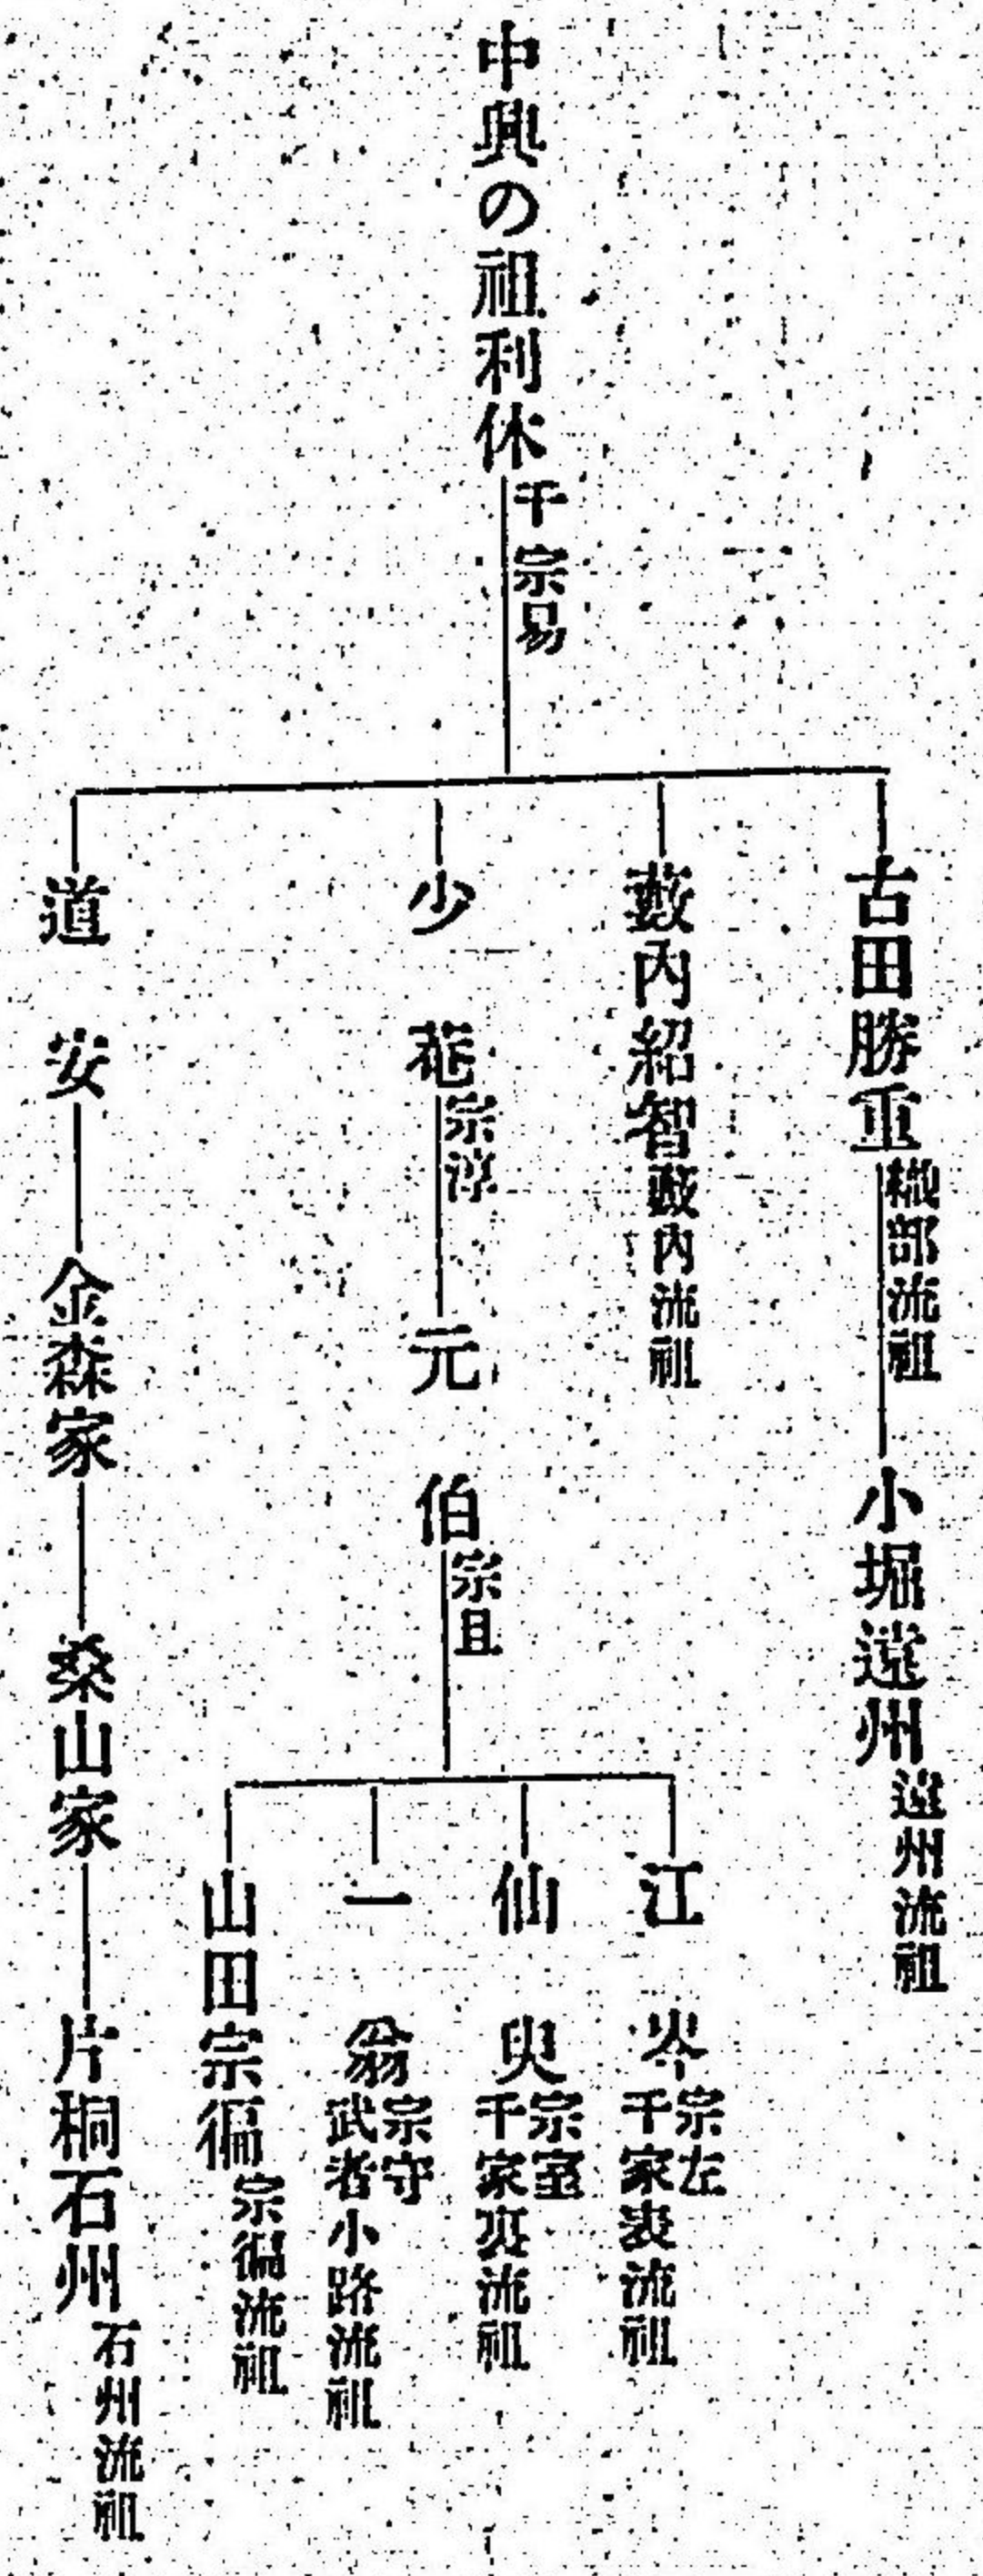 中興の祖利休
千宗易
古田勝重
織部流祖
小堀遠州
遠州流祖
藪內紹智
藪內流祖
少菴
宗淳
元伯
宗旦
江岑
宗左
千家表流祖
仙叟
宗室
千家裏流祖
一翁
宗守
武者小路流祖
山田宗徧
宗徧流祖
道安
金森家
桑山家
片桐石州
石州流祖